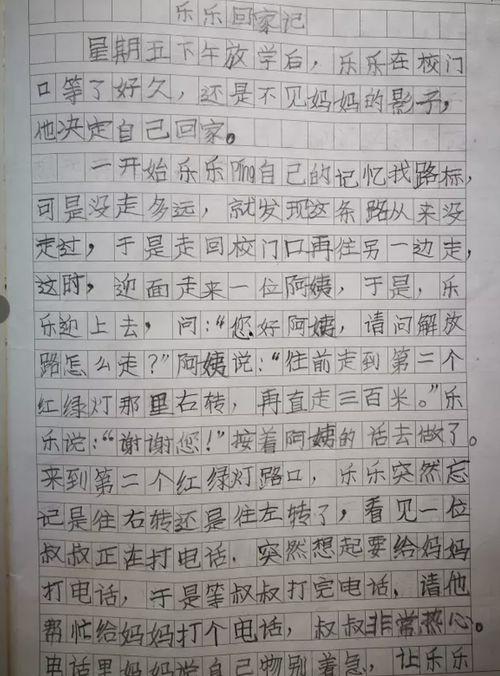 乐乐回家记
星期五下午放学后，乐乐在校门
口等了好久，还是不见妈妈的影子，
他决定自己回家。
一开始乐乐Ping自己的记忆找路标，
可是没走多远，就发现这条路从来没
走过，于是走回校门口再往另一边走，
这时，迎面走来一位阿姨，于是，乐
乐迎上去，问：“您好阿姨，请问解放
路怎么走？”阿姨说：“往前走到第二个
红绿灯那里右转，再直走三百米。”乐
乐说：“谢谢您！”接着阿姨的话去做了。
来到第二个红绿灯路口，乐乐突然忘
记是往右转还是往左转了，看见一位
叔叔正在打电话．突然想起要给妈妈
打电话，于是等叔叔打完电话，请他
帮忙给妈妈打个电话，叔叔非常热心。
电话里妈妈说自己特别着急，让乐乐